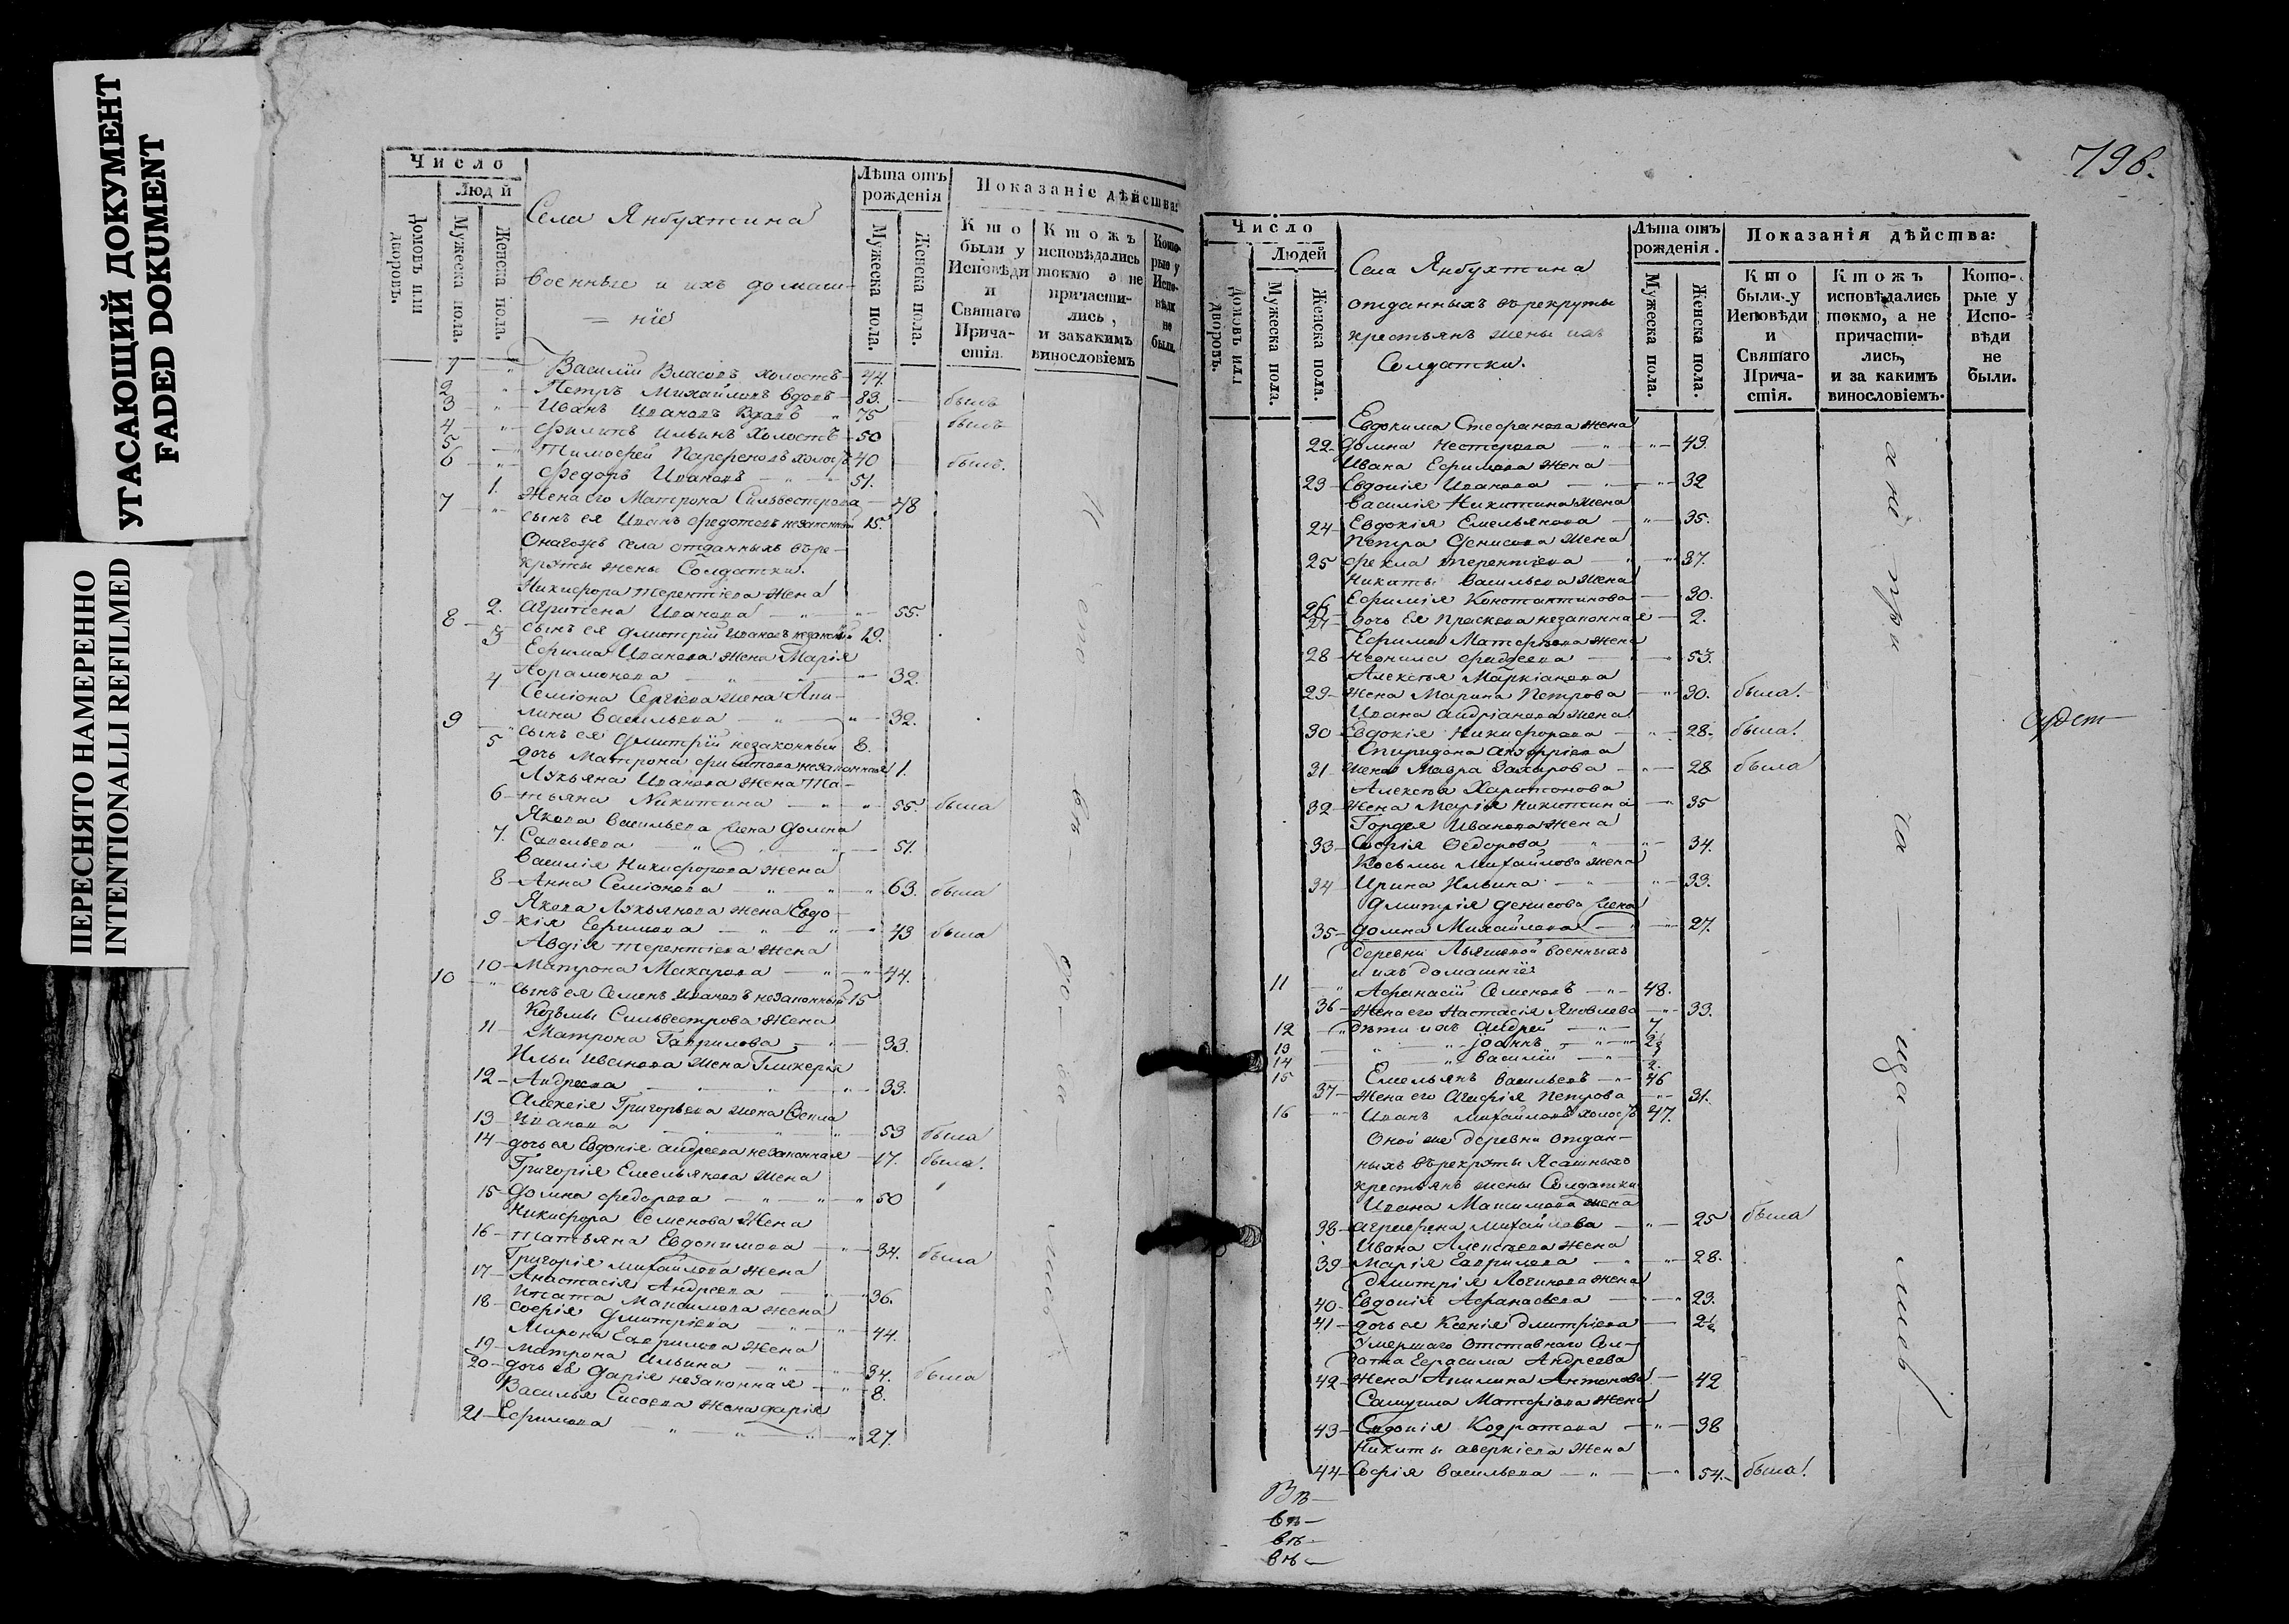 УГАСАЮЩИЙ ДОКУМЕНТ
FADED DOKUMENT
ПЕРЕСНЯТО НАМЕРЕННО
INTENTIONALLI REFILMED
Число
Люд й
Домовъ или дворовъ.
Мужеска пола.
Женска пола.
Села Янбухтина
военные и ихъ домаш-
= ніе
Лѣта отъ рожденія
Мужеска пола.
Женска пола.
Показаніе дѣйства:
Кто были у Исповѣди и Святаго Прича-стія.
Ктожъ исповѣдались токмо а не причасти-лись, и закакимъ винословіемъ
Кото-рые у Испо-вѣди не были.
1 — " — Василій Власовъ холостъ — 44.
2 — " — Петръ Михайловъ вдовъ — 83. — былъ
3 — " — Иванъ Ивановъ Вдовъ " 75 былъ
4 — " — Филипъ Ильинъ Холостъ — 50
5 — " — Тимофей Парфеновъ холостъ 40 былъ.
6 — " — Федоръ Ивановъ — " — 51.
1. Жена его Матрона Сильвестрова — 48
7 — " — сынъ ея Иванъ Федотовъ незаконный 15
Онагожъ села отданныхъ въ ре-
круты жены Солдатки.
Никифора Терентіева жена
2. Агрипена Иванова — " — 55.
8 — сынъ ея Дмитрій Ивановъ незаконный 19.
3 Ефима Иванова жена Марія
Аврамонова — " — 32.
4 Семіона Сергіева жена Аки-
лина Васильева — " — " — 32.
9 — " сынъ ея Дмитрій незаконный 8.
5 дочь Матрона Филипова незаконная 1.
Лукьяна Иванова жена Та-
6 — тьяна Никитина — " — " — 55. была
Якова Васильева жена Домна
7. Савельева — " — " — 51.
Василія Никифорова жена
8 — Анна Семіонова — " — " — " 63. была
Якова Лукьянова жена Евдо-
9 — кія Ефимова — " — " — 43 была
Авдія Терентіева жена
10 — Матрона Макарова — " — " — 44.
10 — " сынъ ея Семенъ Ивановъ незаконный 15
Козьмы Сильвестрова жена
11 — Матрона Гаврилова — " — 33.
Ильи Иванова жена Гликерія
12 — Андреева — " — 33.
Алексія Григорьева жена Фекла
13 — Иванова — " — 53 была
14 — дочь ея Евдокія Андреева незаконная — 17. была.
Григорія Емельянова жена
15 — Домна Федорова — " — " — " 50
Никифора Семенова Жена
16 — Татьяна Евдокимова — " — 34. была
Григорія Михайлова жена
17 — Анастасія Андреева — " 36.
Ипата Максимова жена
18 — Софія Дмитріева — " — " — 44.
Мирона Гаврилова жена
19 — Матрона Ильина — " — 34. была
20 — дочь ея Дарія незаконная — " — 8.
Василья Сысоева жена Дарія
21 — Ефимова — " — " — " 27.
796.
Число
Людей
Домовъ или дворовъ.
Мужеска пола.
Женска пола.
Села Янбухтина
отданныхъ въ рекруты
крестьянъ жены ихъ
Солдатки.
Лѣта отъ рожденія.
Мужеска пола.
Женска пола.
Показанія дѣйства:
Кто были у Исповѣди и Святаго Прича-стія.
Ктожъ исповѣдались токмо, а не причасти-лись, и за какимъ винословіемъ.
Кото-рые у Испо-вѣди не были.
Евдокима Стефанова жена
22 — Домна Нестерова — " — " — 49.
Ивана Ефимова жена —
23 — Евдокія Иванова — " — " — 32
Василія Никитина жена
24 — Евдокія Емельянова — " — 35.
Петра Денисова жена
25 Фекла Терентіева — " — 37.
Никиты Васильева жена
26 Ефимія Константинова — 30.
27 — дочь Ея Праскева незаконная — 2.
Ефима Матфіева жена
28 — Неонила Фадеева — " — 53.
Алексея Маркіанова
29 — Жена Марина Петрова — " — 30. была.
Ивана Андріанова жена
30 — Евдокія Никифорова — " — 28. была.
Спиридона
31 — жена Мавра Захарова — " — 28 была
Алексея Харитонова
32 — Жена Марія Никитина — " — 35
Гордея Иванова жена
33 — Софія Федорова — " — " — 34.
Косьмы Михайлова жена
34 — Ирина Ильина — " — 33.
Дмитрія Денисова жена
35 — Домна Михайлова — " — 27.
деревни Льяшевой военныхъ
и ихъ домашніе
11 — " Афанасій Семеновъ — " — 48.
36 — Жена его Настасія Яковлева — " — 33.
12 — " дѣти ихъ Андрей — " — 7
13 — " — " Іоаннъ — " —
14 — " Василій — "
15 Емельянъ Васильевъ — " — 46
37 — Жена его Агафія Петрова — 31.
16 — " Иванъ Михайловъ холостъ 47.
Оной же деревни отдан-
ныхъ въ рекруты Ясашныхъ
крестьянъ жены Солдатки
Ивана Максимова жена
38 — Агрипена Михайлова — " — 25 была
Ивана Алексеева жена
39 — Марія Гаврилова — " — 28.
Дмитрія Логинова жена
40 — Евдокія Афанасьева — " — 23.
41 — дочь ея Ксенія Дмитріева — 2½
Умершаго Отставнаго Сол-
дата Герасима Андреева
42 — Жена Акилина Антонова — 42
Самуила Матфіева жена
43 — Евдокія Кодратова — " — 38
Никиты Аверкіева жена
44 — Софія Васильева — " — 54. была.
Въ —
въ —
въ —
въ —